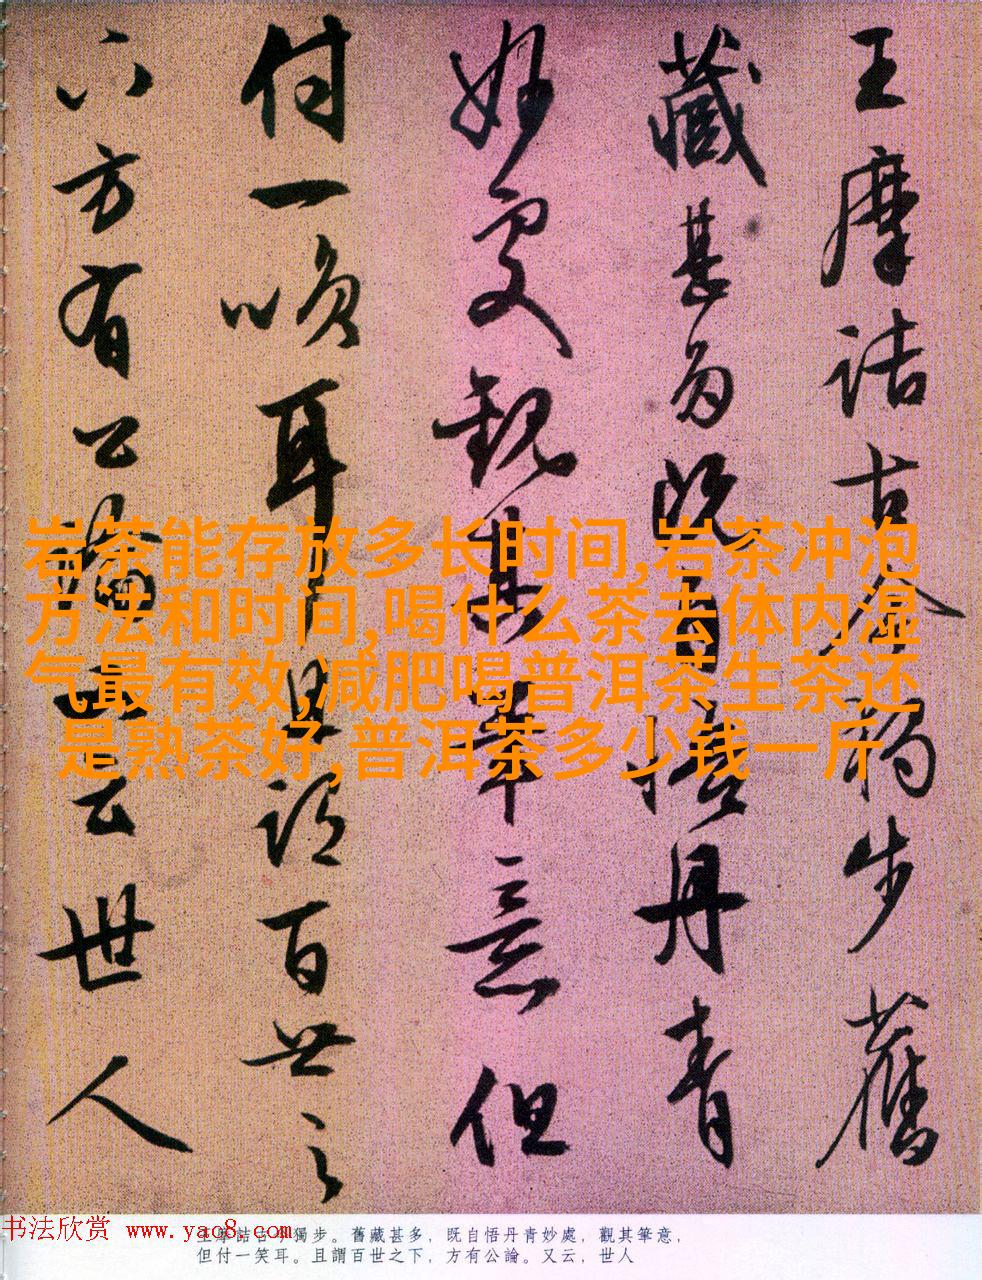 王摩詰古今獨步舊
藏甚多既自悟丹青
妙處觀其筆意但
付一笑耳且謂百世之
下方有公論又云世人
岩茶能存放多长时间,岩茶冲泡
方法和时间,喝什么茶去体内湿
气最有效,减肥喝普洱茶生茶还
是熟茶好,普洱茶多少钱一斤
书法欣赏 www.yac8.com
王摩詰古今獨步。舊藏甚多，既自悟丹青妙處，觀其筆意，
但付一笑耳。且謂百世之下，方有公論。又云，世人